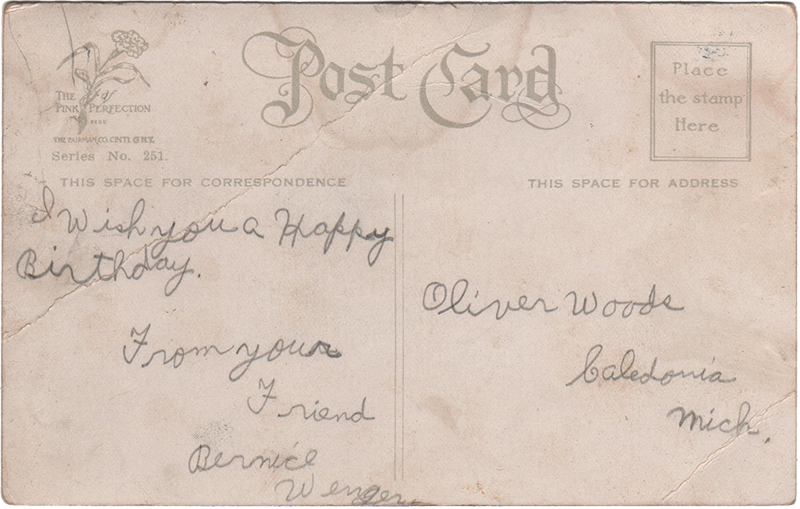 Post Card
THE
PINK PERFECTION
Series No. 251.
Place
the stamp
Here
THIS SPACE FOR CORRESPONDENCE
THIS SPACE FOR ADDRESS
I Wish you a Happy
Birthday.
From your
Friend
Bernice
Wenger
Oliver Woods
Caledonia
Mich.